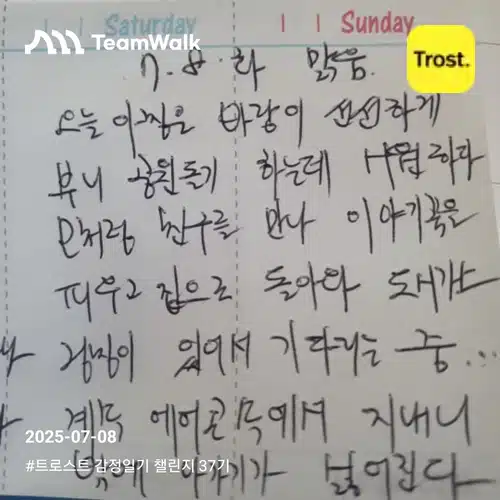 Saturday Sunday
TeamWalk
Trost.
7.8.화 맑음.
오늘 아침은 바람이 선선하게
부니 공원돌기 하는데 수월하다
모처럼 친구를 만나 이야기꽃을
피우고 집으로 돌아와 도시가스
점검이 있어서 기다리는 중...
계속 에어콘속에서 지내니
밖에 나가기가 싫어진다
2025-07-08
#트로스트 감정일기 챌린지 37기